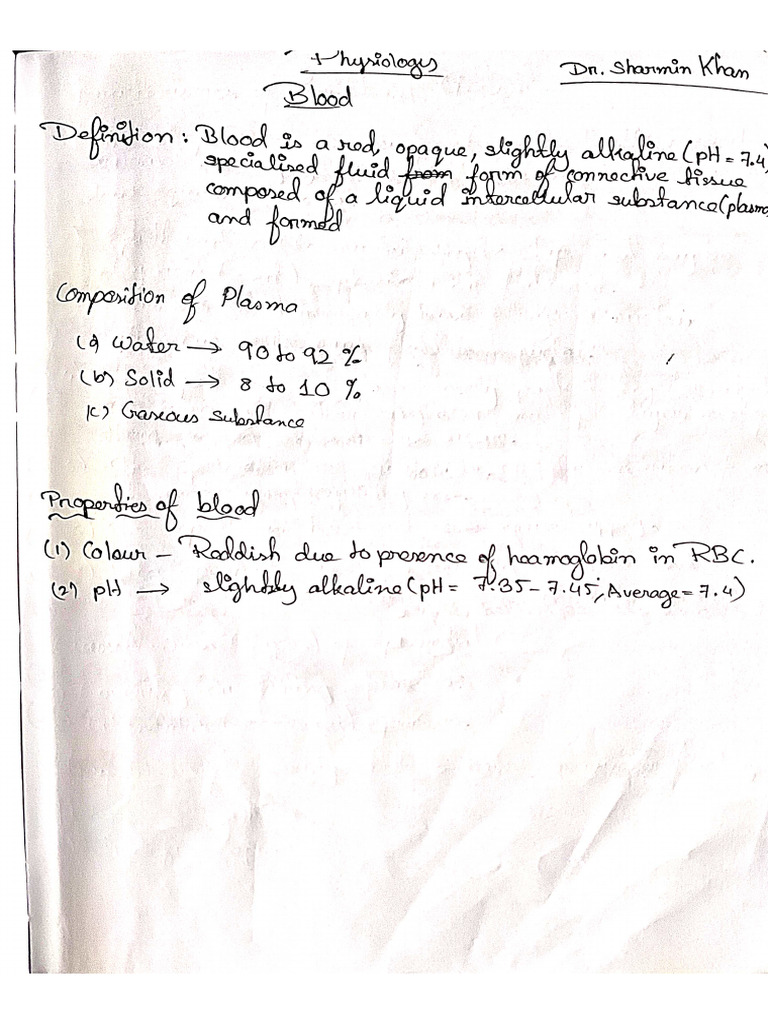 Physiology
Dr. Sharmin Khan
Blood
Definition: Blood is a red, opaque, slightly alkaline (pH = 7.4
specialised fluid from form of connective tissue
composed of a liquid intercellular substance (plasma
and formed
Composition of Plasma
(a) Water → 90 to 92 %
(b) Solid → 8 to 10 %
(c) Gaseous substance
Properties of blood
(1) Colour – Reddish due to presence of heamoglobin in RBC.
(2) pH → slightly alkaline (pH = 7.35 – 7.45; Average = 7.4)